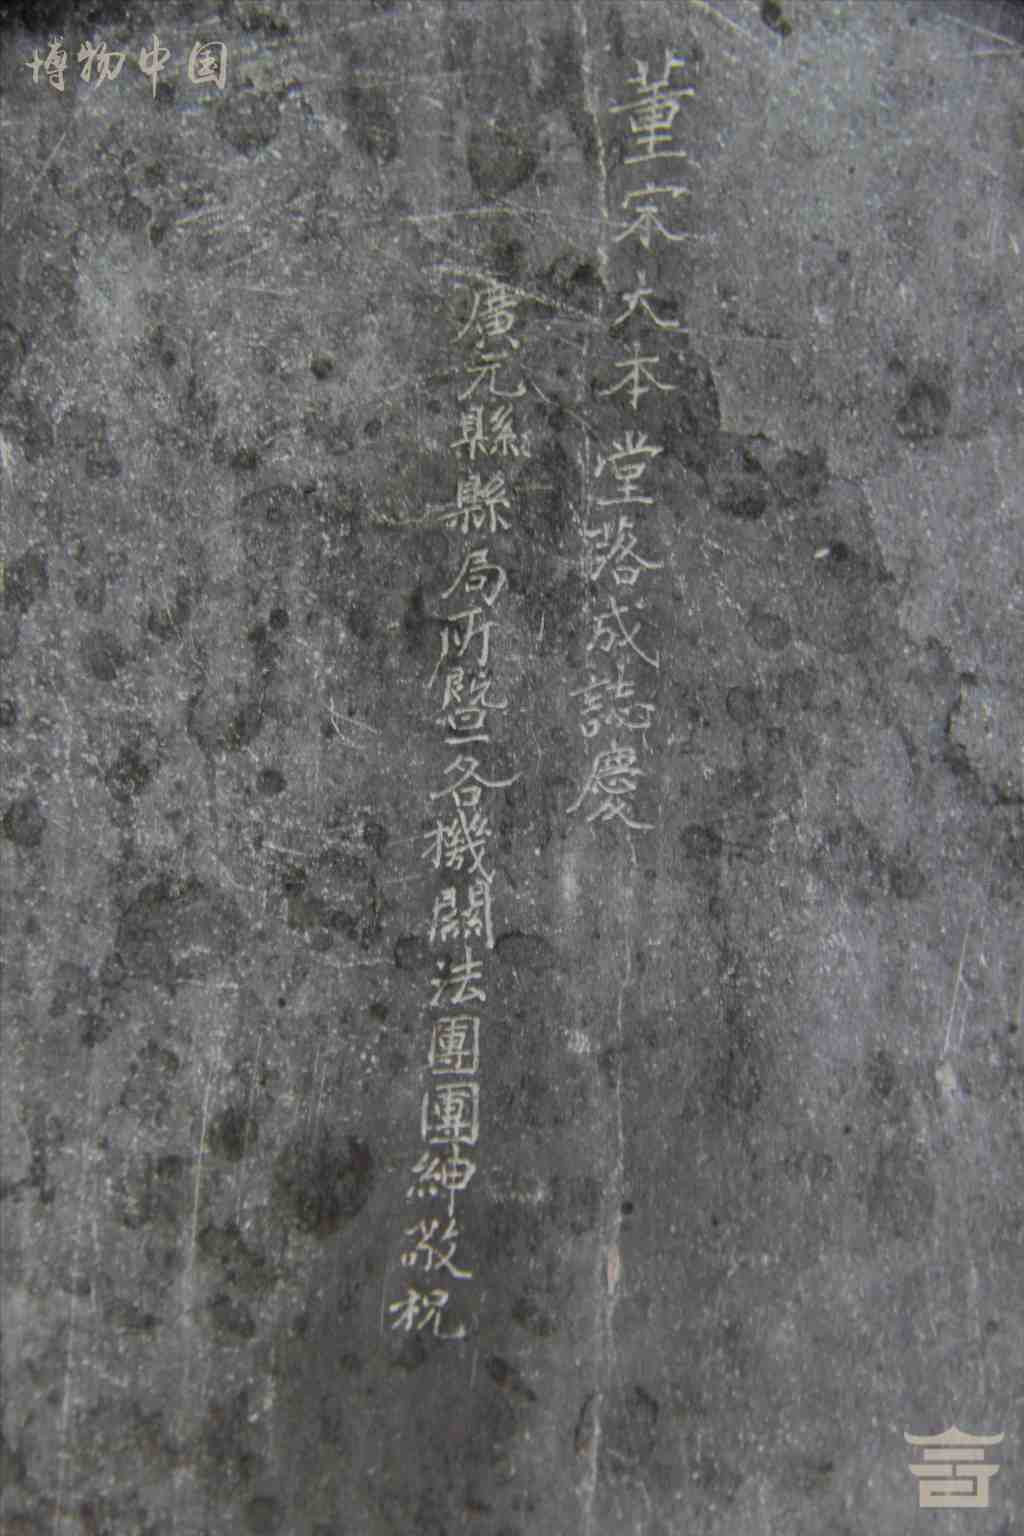 博物中国
董宋大本堂落成誌慶
廣元縣縣局所暨各機關法團團紳敬祝